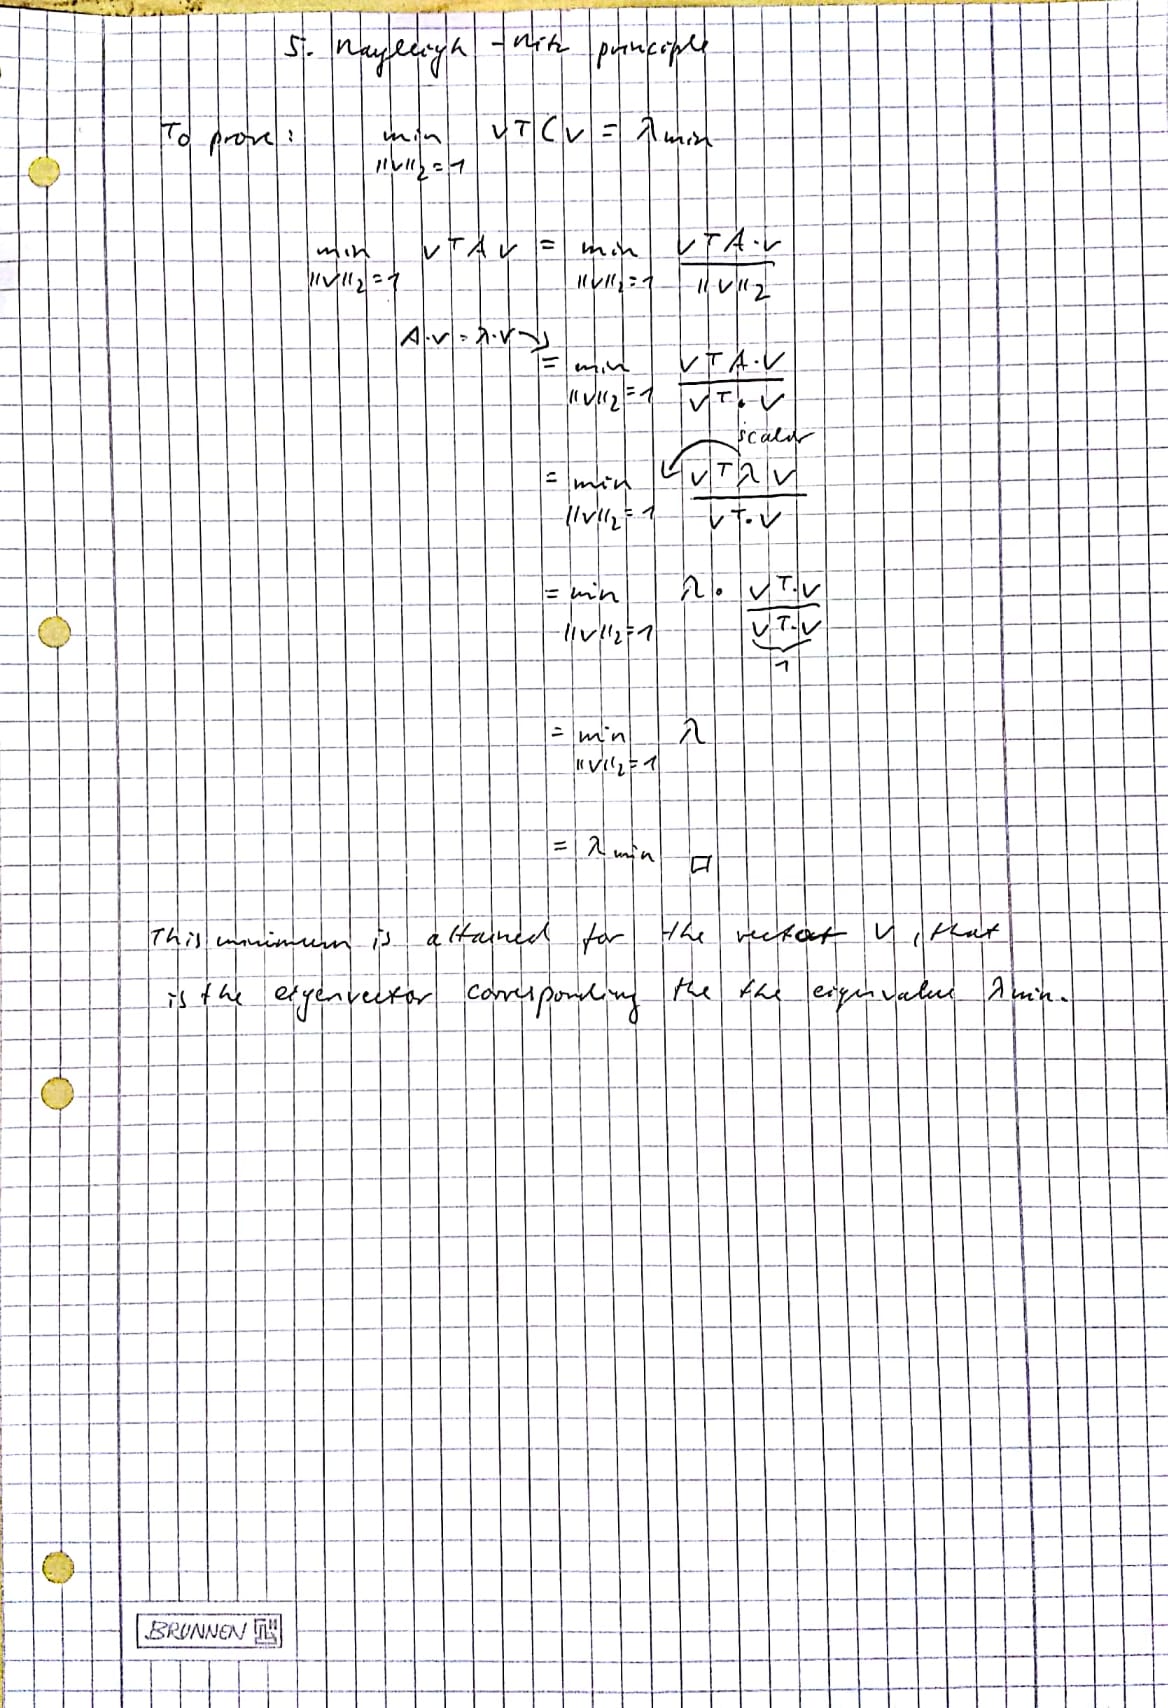 5. Rayleigh - Ritz principle
To prove: min V T C V = λ min
||V||2 = 1
min V T A V = min V T A · V
||V||2 = 1 ||V||2 = 1 ||V||2
A · V = λ · V
= min V T A · V
||V||2 = 1 V T · V
scalar
= min V T λ V
||V||2 = 1 V T · V
= min λ · V T · V
||V||2 = 1 V T · V
1
= min λ
||V||2 = 1
= λ min □
This minimum is attained for the vector V, that
is the eigenvector corresponding the the eigenvalue λ min.
BRUNNEN